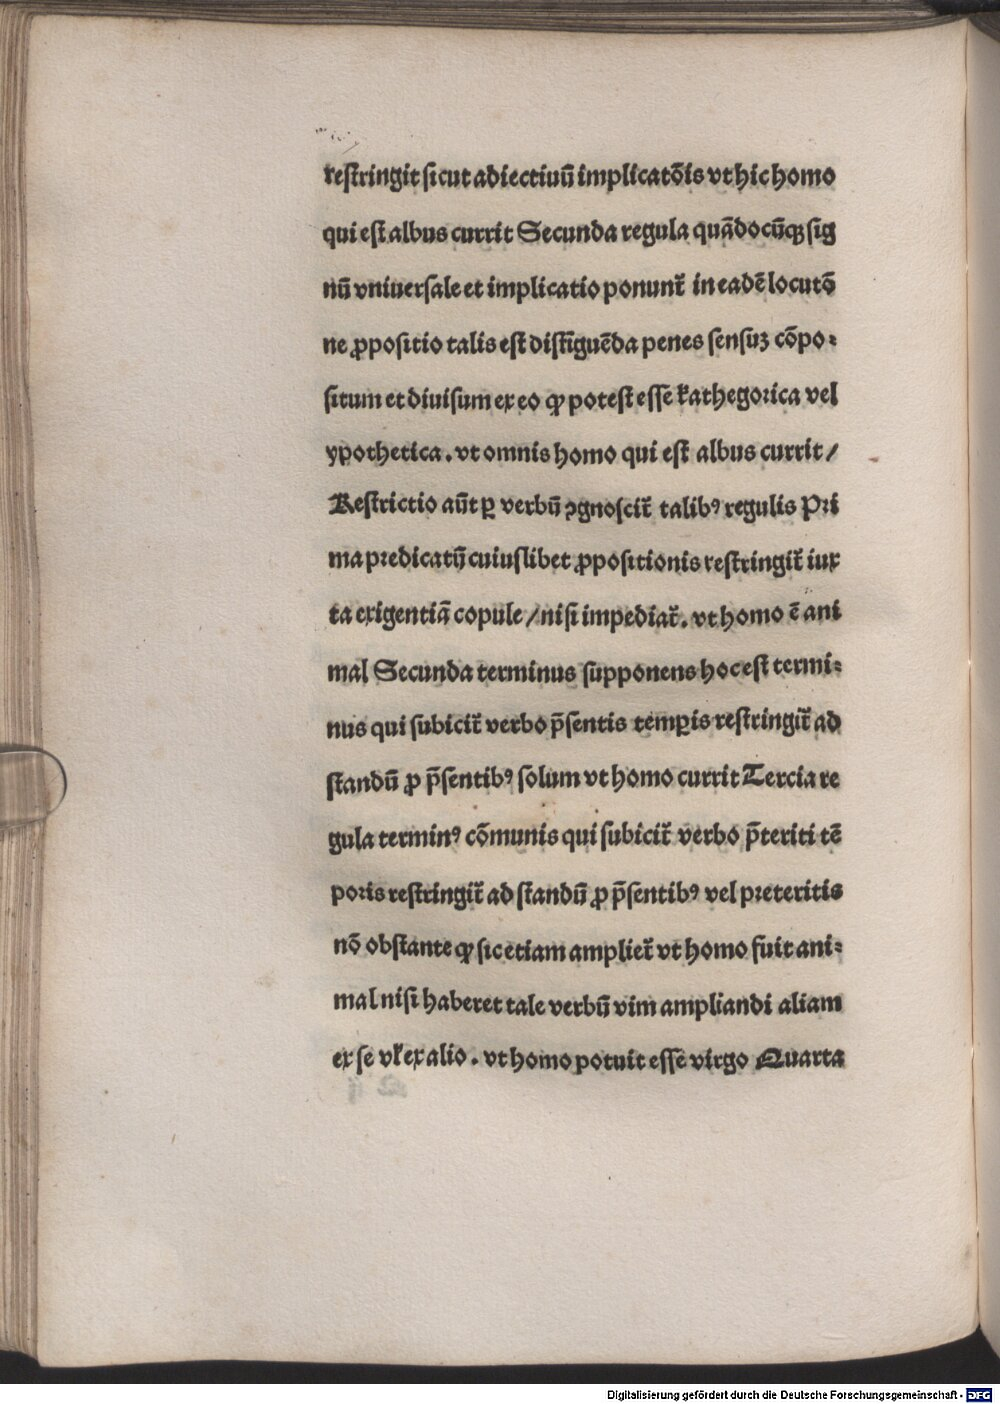 restringit sicut adiectiuū implicatōis vt hic homo
qui est albus currit Secunda regula quādocūqꝫ sig
nū vniuersale et implicatio ponunt᷑ in eadē locutō
ne ꝓpositio talis est distīguēda penes sensuꝫ cōpo⸗
situm et diuisum ex eo ꝙ potest esse kathegorica vel
ypothetica. vt omnis homo qui est albus currit/
Restrictio aūt ꝑ verbū ꝯgnoscit᷑ talibꝰ regulis Pri
ma predicatū cuiuslibet ꝓpositionis restringit᷑ iux
ta exigentiā copule/nisi impediat᷑. vt homo ē ani
mal Secunda terminus supponens hoc est termi⸗
nus qui subicit᷑ verbo p̄sentis temꝑis restringit᷑ ad
standū ꝓ p̄sentibꝰ solum vt homo currit Tercia re
gula terminꝰ cōmunis qui subicit᷑ verbo p̄teriti tē
poris restringit᷑ ad standū ꝓ p̄sentibꝰ vel preteritis
nō obstante ꝙ sic etiam ampliet᷑ vt homo fuit ani⸗
mal nisi haberet tale verbū vim ampliandi aliam
ex se vꝉ ex alio. vt homo potuit esse virgo Quarta
Digitalisierung gefördert durch die Deutsche Forschungsgemeinschaft - DFG